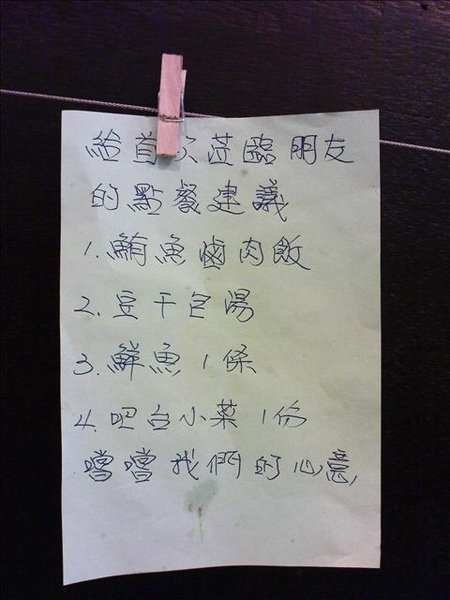 給首次莅臨朋友
的點餐建議
1.鮪魚滷肉飯
2.豆干包湯
3.鮮魚1條
4.吧台小菜1份
嚐嚐我們的心意